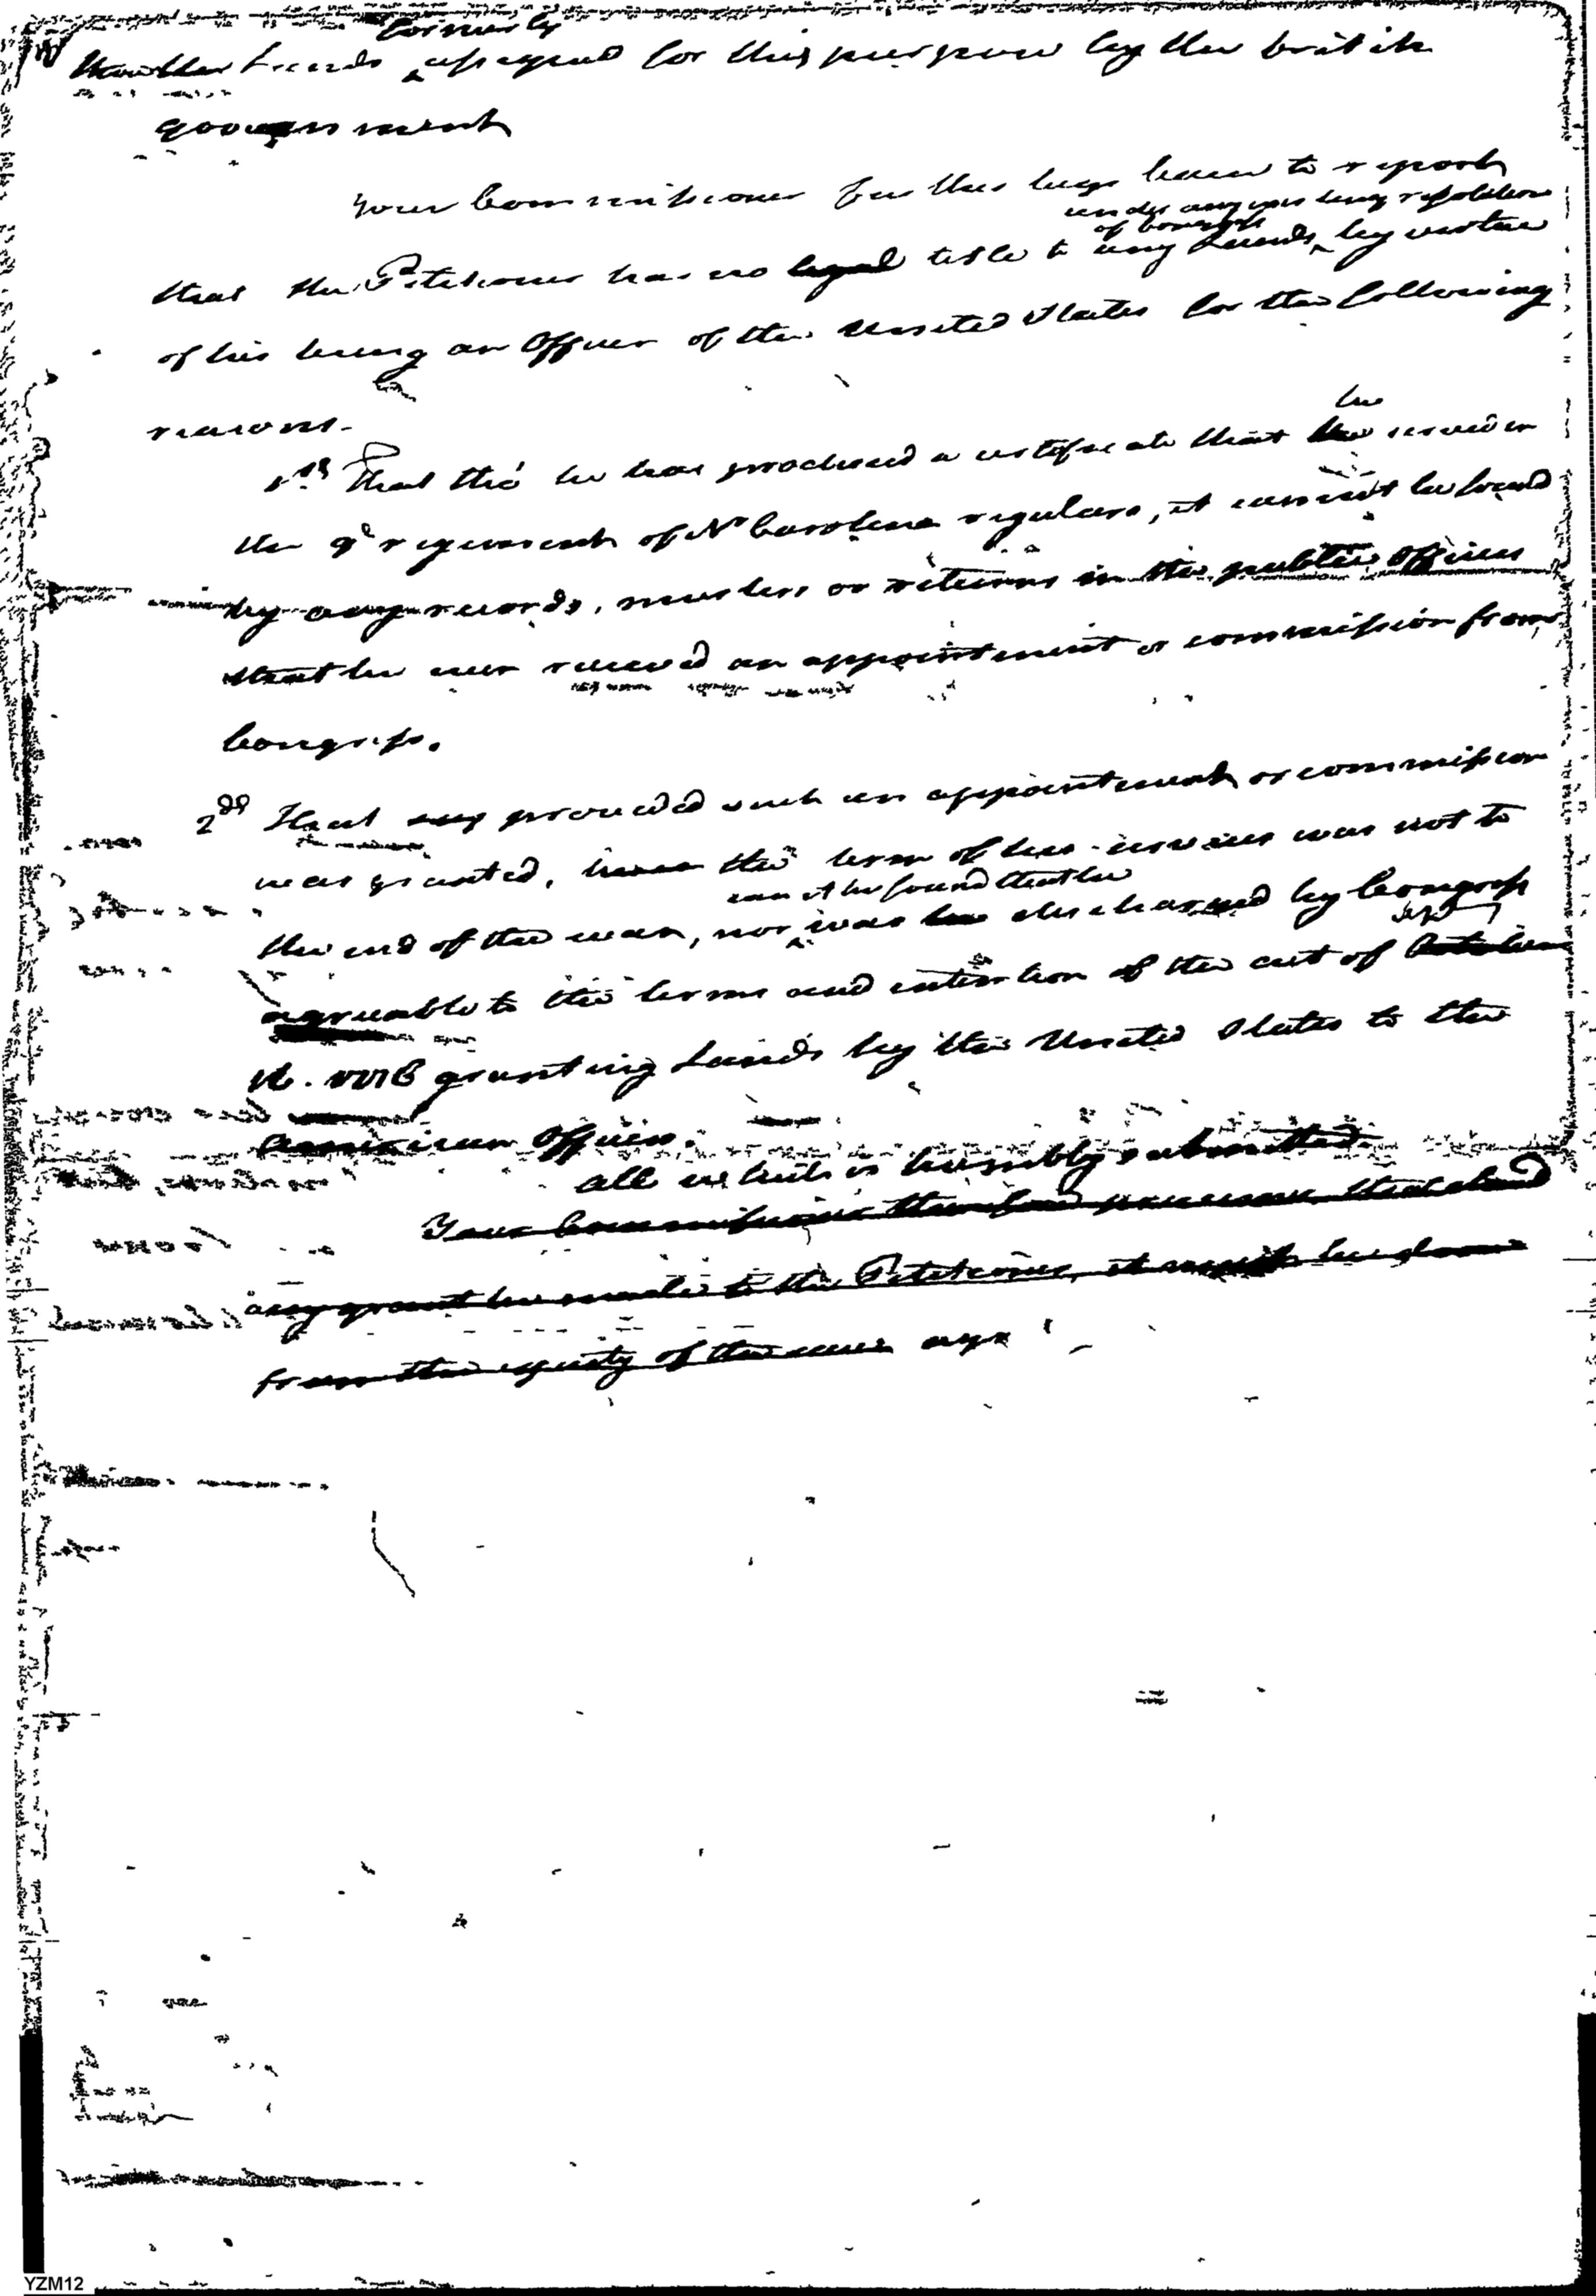 formerly
Lands assigned for this purpose by the british
government
Your Commissioner further begs leave to report
under any existing resolution
of Congress
that the Petitioner has no legal title to any Lands, by virtue
of his being an Officer of the United States for the following
reasons.
he
1st That tho' he has produced a certificate that served in
the 9th regiment of No Carolina regulars, it cannot be found
by any records, musters or returns in the public offices
that he ever received an appointment or commission from
Congress.
2dd That provided such an appointment or commission
was granted, the term of his services was not to
can it be found that he
the end of the war, nor was discharged by Congress
Sepr
agreeable to the terms and intention of the act of
16. 1776 granting Lands by the United States to the
american Officers.
all which is humbly submitted.
Your Commissioner therefore that should
any grant be made to the Petitioner, it must be done
from the equity of the case
YZM12